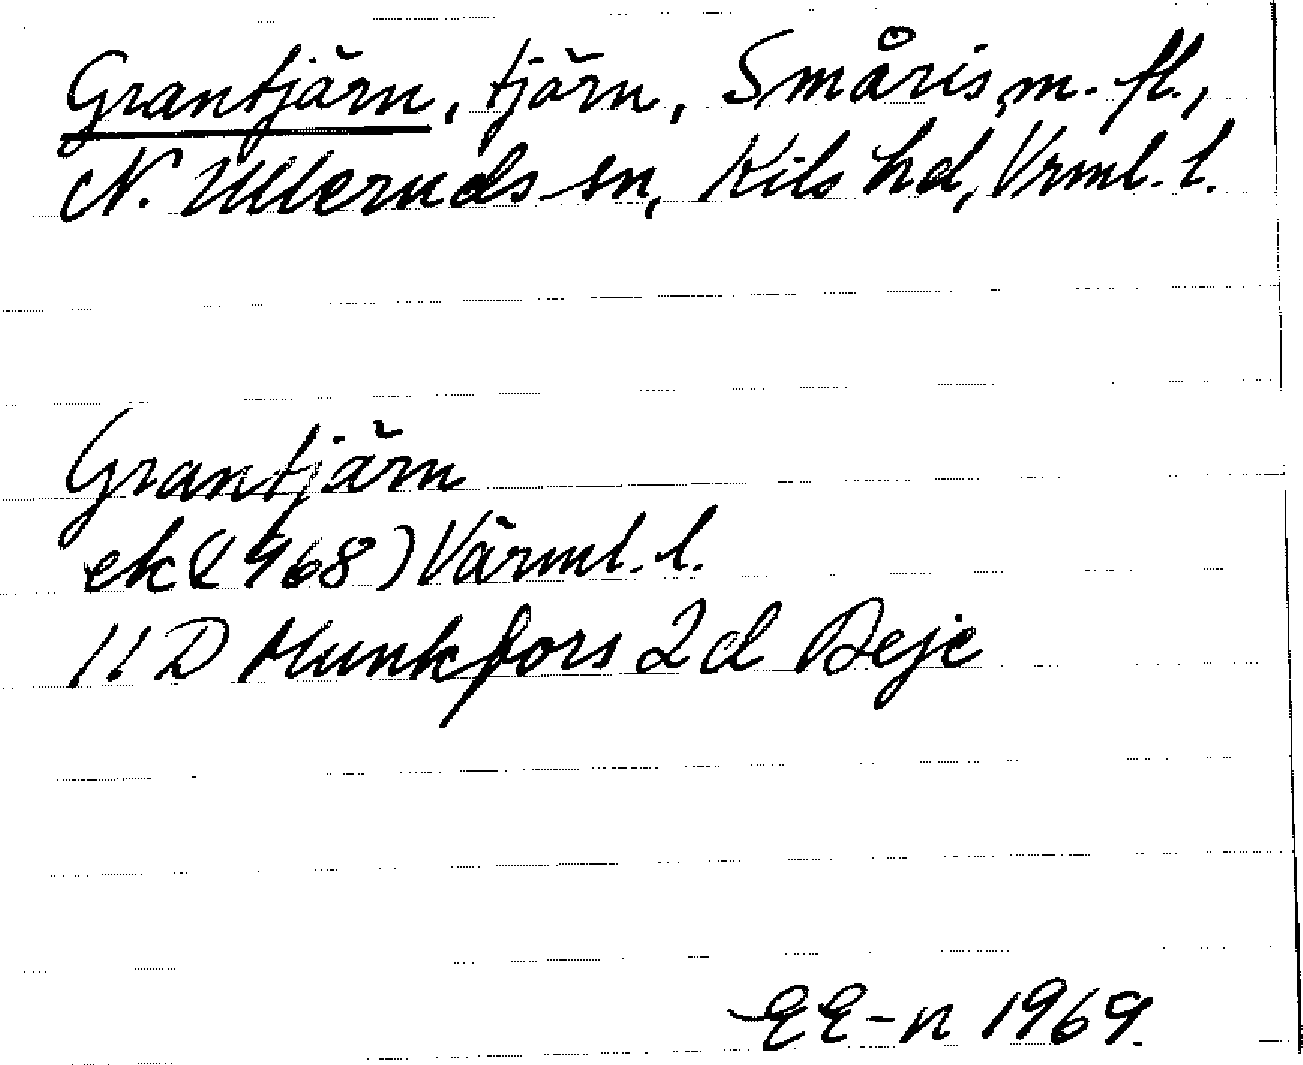 Grantjärn, tjärn, Småris m. fl.,
N. Ulleruds sn, Kils hd, Vrml. l.
Grantjärn
ek (1968) Värml. l.
11 D Munkfors 2d Deje
EE-n 1969.